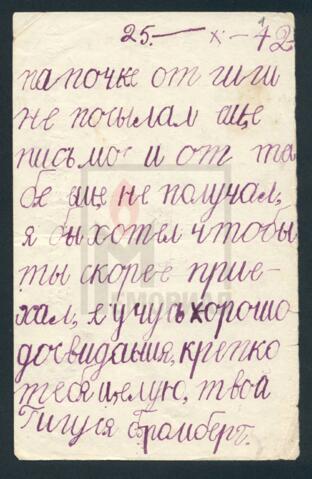 25.— X — 42
папочке от гиги
не посылал еще
письмо и от те
бе еще не получал,
я бы хотел чтобы
ты скорее прие-
хал, я учусь хорошо
досвидания, крепко
тебя целую, твой
Гигуся Бромберг.
МЕМОРИАЛ